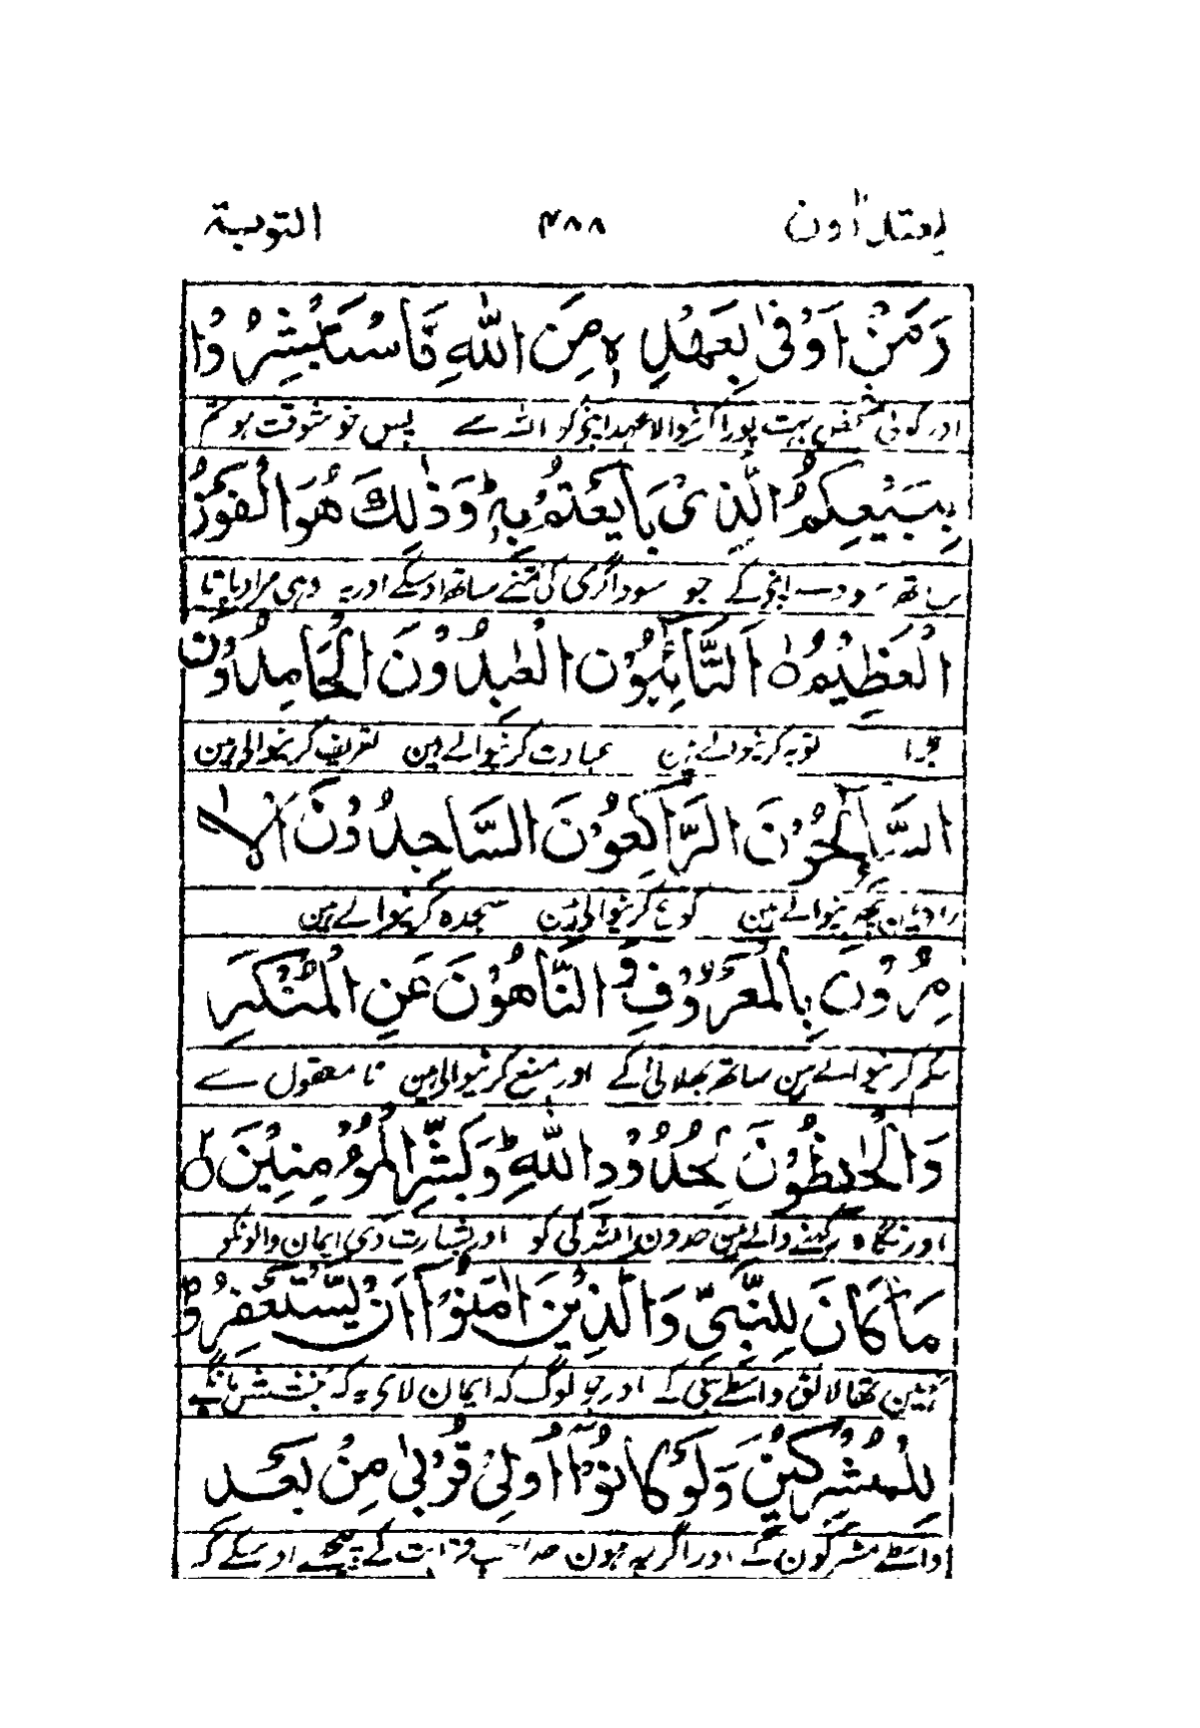 یعتذرون ۴۸۸ التوبة
وَمَنْ اَوْفٰى بِعَهْدِهٖ مِنَ اللّٰهِ فَاسْتَبْشِرُوْا
اور کوئی شخص بہت پورا کرنیوالا عہد اپنیکو اللہ سے پس خوشوقت ہو تم
بِبَيْعِكُمُ الَّذِىْ بَايَعْتُمْ بِهٖ ؕ وَذٰلِكَ هُوَ الْفَوْزُ
ساتھ اپنیکے جو سوداگری کی تمنے ساتھ اوسکے اور یہ وہی مراد پانا
الْعَظِيْمُ ۝ اَلتَّآئِبُوْنَ الْعٰبِدُوْنَ الْحَامِدُوْنَ
بڑا توبہ کرنیوالے ہین عبادت کرنیوالے ہین تعریف کرنیوالی ہین
السَّآئِحُوْنَ الرَّاكِعُوْنَ السَّاجِدُوْنَ الْاٰ
ہین رکوع کرنیوالی ہین سجدہ کرنیوالے ہین
مِرُوْنَ بِالْمَعْرُوْفِ وَ النَّاهُوْنَ عَنِ الْمُنْكَرِ
حکم کرنیوالے ہین ساتھ بھلائی کے اور منع کرنیوالی ہین نامعقول سے
وَالْحٰفِظُوْنَ لِحُدُوْدِ اللّٰهِ ؕ وَبَشِّرِ الْمُؤْمِنِيْنَ ۝
اور نگاہ رکہنے والے ہین حدون اللہ کی کو اور بشارت دی ایمان والونکو
مَا كَانَ لِلنَّبِىِّ وَالَّذِيْنَ اٰمَنُوْٓا اَنْ يَّسْتَغْفِرُوْا
نہین تھا لائق واسطے نبی کے اور جو لوگ کہ ایمان لای یہ کہ بخشش مانگے
لِلْمُشْرِكِيْنَ وَلَوْ كَانُوْٓا اُولِىْ قُرْبٰى مِنْۢ بَعْدِ
واسطے مشرکون کے اور اگرچہ ہون صاحب قرابت کے پیچھے اوسکے کہ